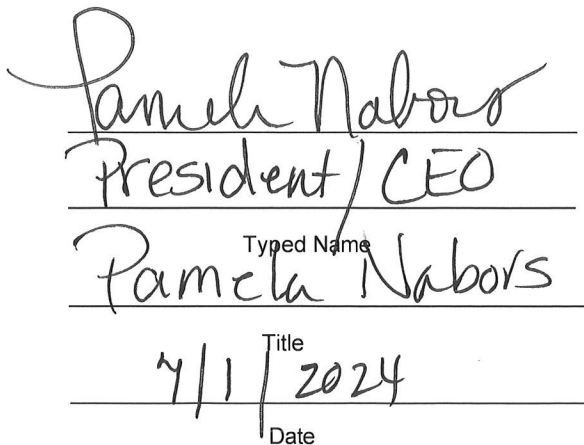 Pamela Nabors
President/CEO
Typed Name
Pamela Nabors
Title
7/1/2024
Date